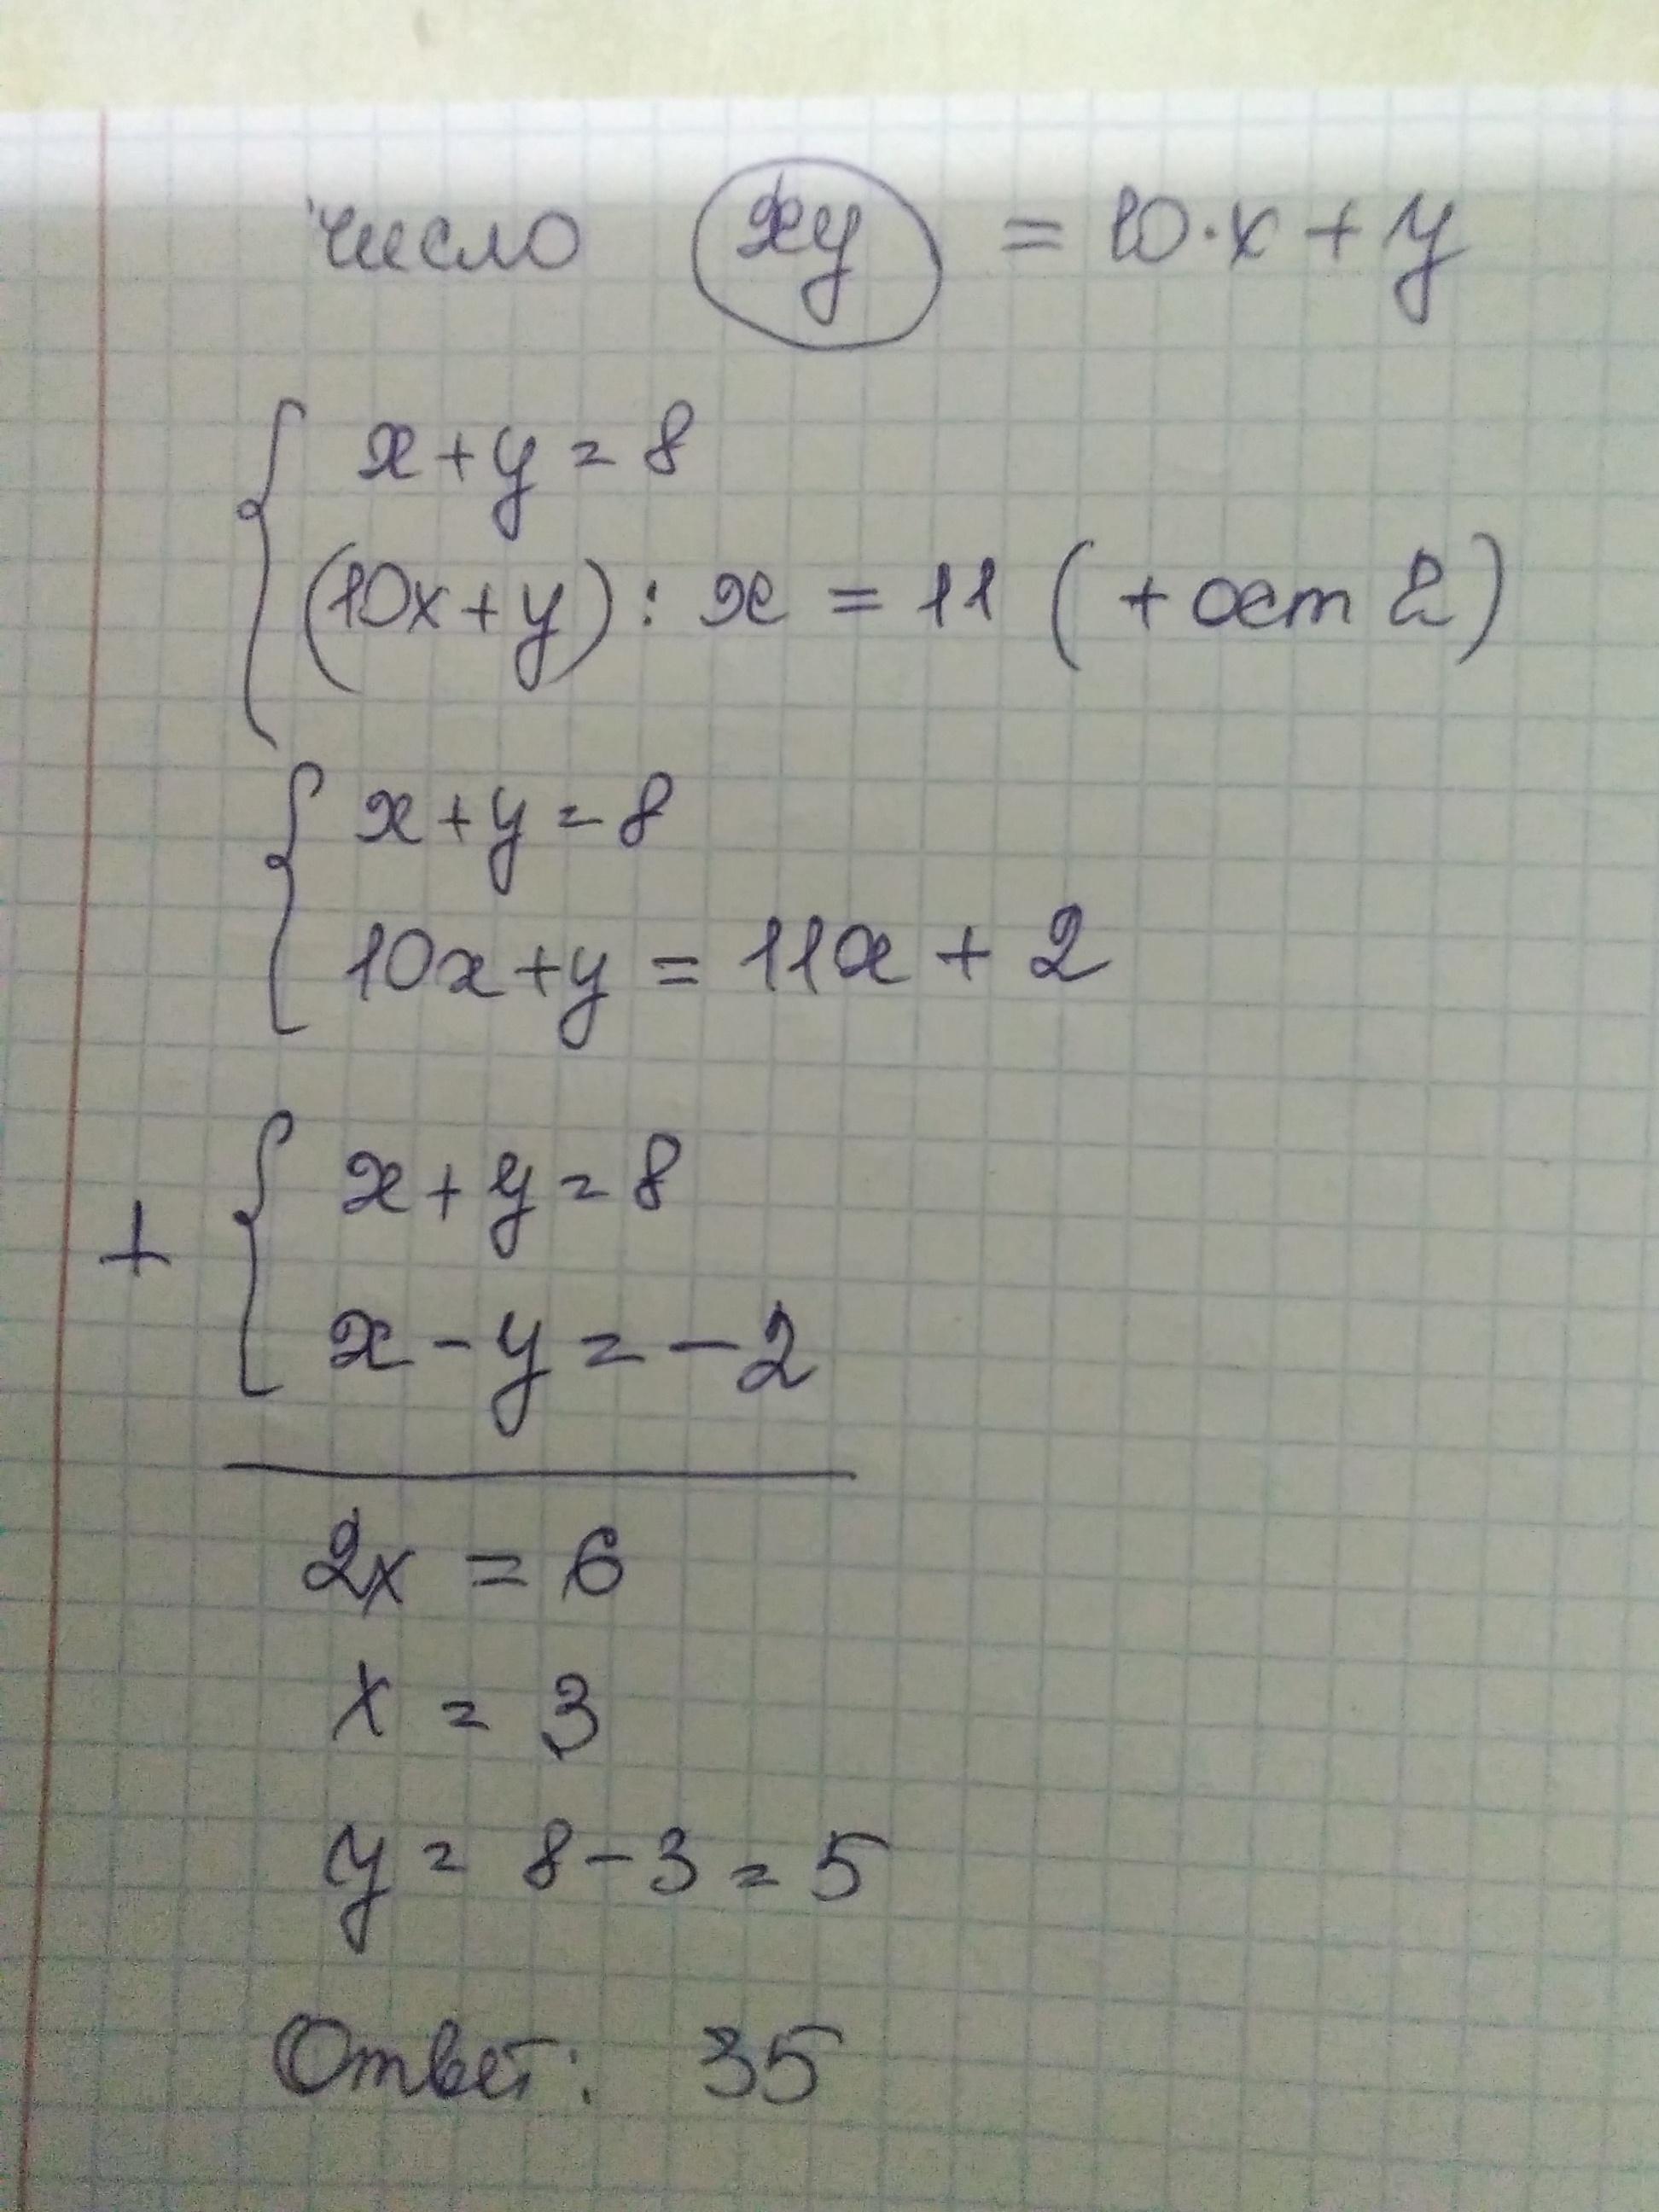 число xy = 10·x + y
x + y = 8
(10x + y) : x = 11 (+ ост 2)
x + y = 8
10x + y = 11x + 2
x + y = 8
+
x - y = -2
2x = 6
x = 3
y = 8 - 3 = 5
Ответ: 35